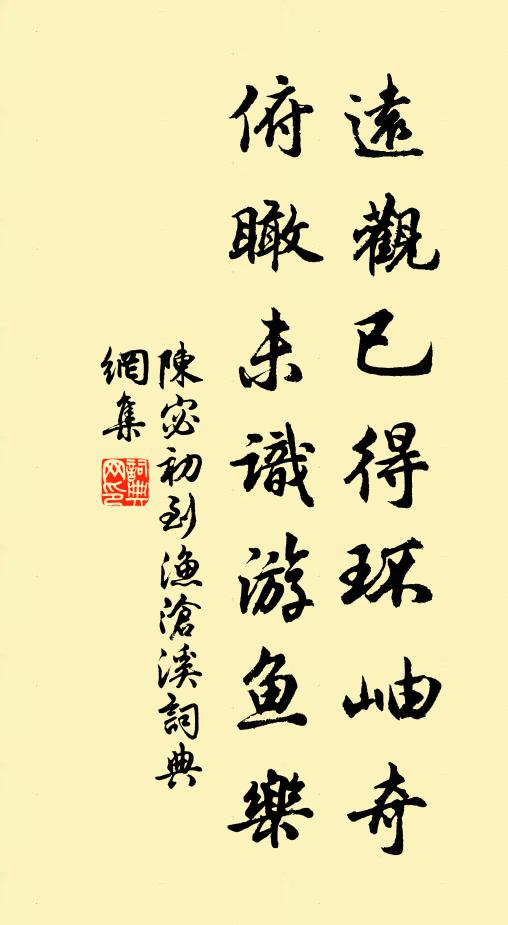 遠觀已得環岫奇
俯瞰未識游魚樂
陳宓初到漁滄溪詞典
網集
詞典
网印